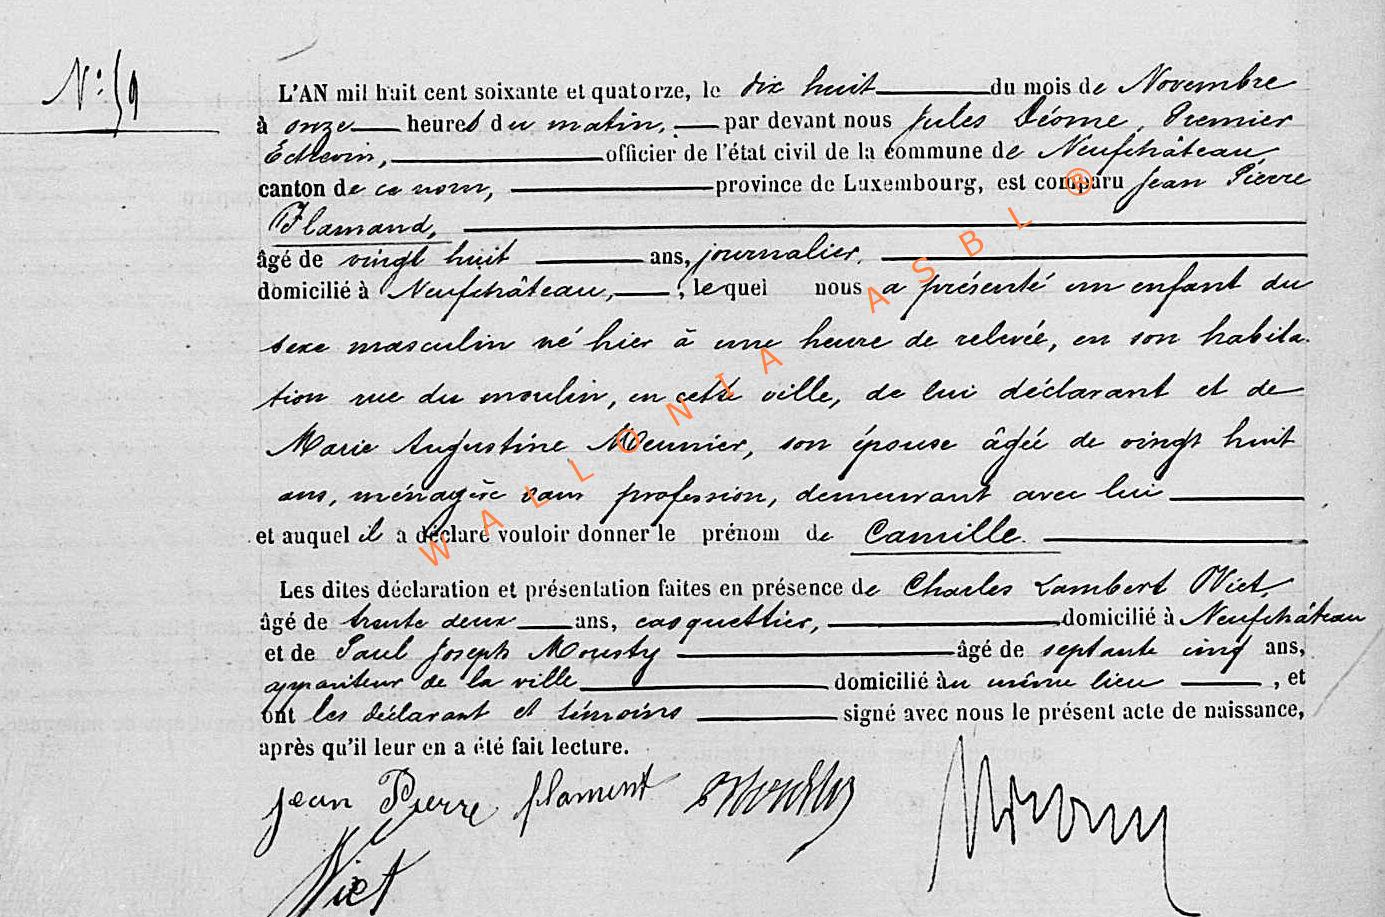 N° 59
L'AN mil huit cent soixante et quatorze, le dix huit du mois de Novembre
à onze heures du matin, par devant nous Jules Déome, Premier
Echevin, officier de l'état civil de la commune de Neufchâteau,
canton de ce nom, province de Luxembourg, est comparu Jean Pierre
Flamand,
âgé de vingt huit ans, journalier,
domicilié à Neufchâteau, , lequel nous a présenté un enfant du
sexe masculin né hier à une heure de relevée, en son habita-
tion rue du moulin, en cette ville, de lui déclarant et de
Marie Augustine Meunier, son épouse âgée de vingt huit
ans, ménagère sans profession, demeurant avec lui
et auquel il a déclaré vouloir donner le prénom de Camille.
Les dites déclaration et présentation faites en présence de Charles Lambert Wiet,
âgé de trente deux ans, casquettier, domicilié à Neufchâteau
et de Paul Joseph Mousty âgé de septante cinq ans,
appariteur de la ville domicilié au même lieu , et
ont les déclarant et témoins signé avec nous le présent acte de naissance,
après qu'il leur en a été fait lecture.
Jean Pierre flament Mousty
Wiet
WALLONIA ASBL ®